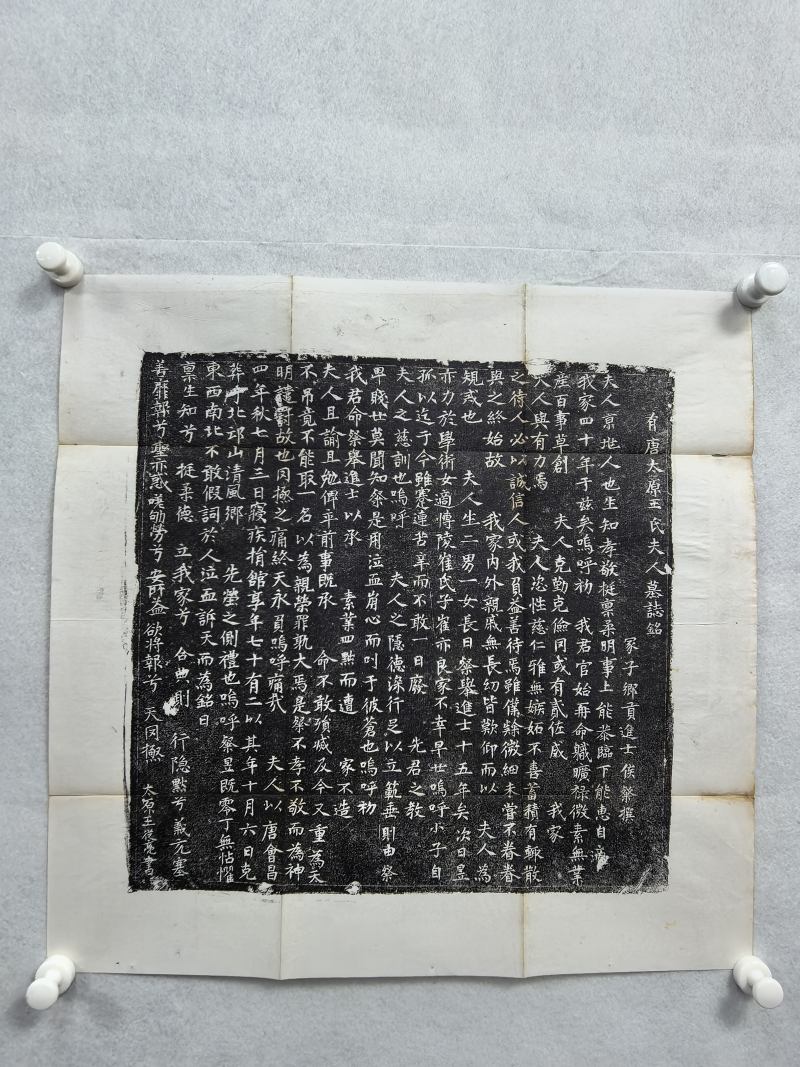 有唐太原王氏夫人墓誌銘
冢子鄉貢進士侯粲撰
夫人京地人也生知孝敬挺稟柔明事上能恭臨下能惠自
我家四十年于兹矣嗚呼初 我君官始再命職曠禄微素無業
産百事草創 夫人克勤克儉罔或有貳佐成 我家
夫人與有力焉 夫人恣性慈仁雅無嫉妬不喜蓄積有輒散
之待人必以誠信人或我負益善待焉雖僕隸微細未嘗不眷眷
與之終始故 我家内外親戚無長幼皆歎仰而以 夫人為
規戒也 夫人生二男一女長曰粲舉進士十五年矣次曰昱
亦力於學術女適博陵崔氏子崔亦良家不幸早世嗚呼小子自
孤以迄于今雖蹇連苦辛而不敢一日廢 先君之教
夫人之慈訓也嗚呼 夫人之隱德深行足以立範垂則由粲
卑賤世莫聞知粲是用泣血崩心而叫于彼蒼也嗚呼初
我君命粲舉進士以承 素業四點而遭 家不造
夫人且諭且勉俾平前事既承 命不敢殞滅及今又重為天
不吊竟不能取一名以為親榮罪孰大焉是粲不孝不敬而為神
明譴罸故也罔極之痛終天永負嗚呼痛哉 夫人以唐會昌
四年秋七月三日寢疾捐館享年七十有二以其年十月六日克
葬于北邙山清風鄉 先塋之側禮也嗚呼粲昱既零丁無怙懼
東西南北不敢假詞於人泣血訴天而為銘曰
稟生知兮 挺柔德 立我家兮 合典則 行隐點兮 義充塞
善靡報兮 靈亦惑 嗟劬勞兮 安所益 欲將報兮 天罔極
太原王從亮書